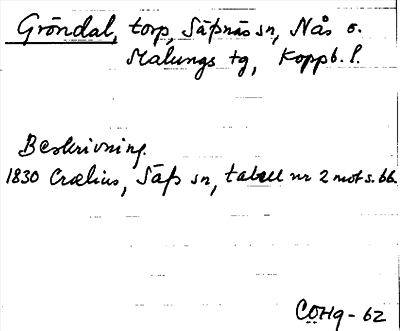 Gröndal, torp, Säfsnäs sn, Nås o.
Malungs tg, Koppb. l.
Beskrivning.
1830 Crælius, Säfs sn, tabell nr 2 mot s. 66.
COHq - 62